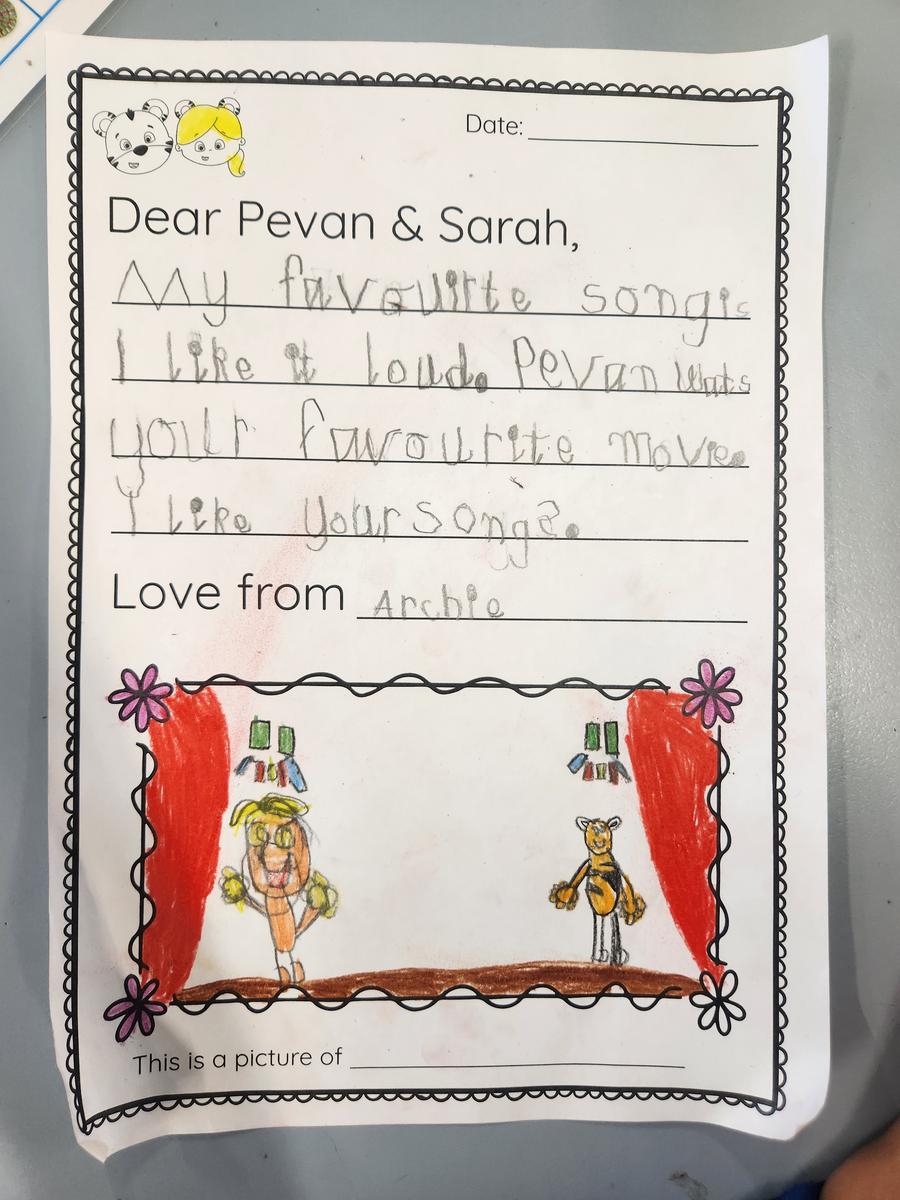 Date:
Dear Pevan & Sarah,
My favouirte song is
I like it loud. Pevan wats
your favourite movie.
I like your songs.
Love from Archie
This is a picture of